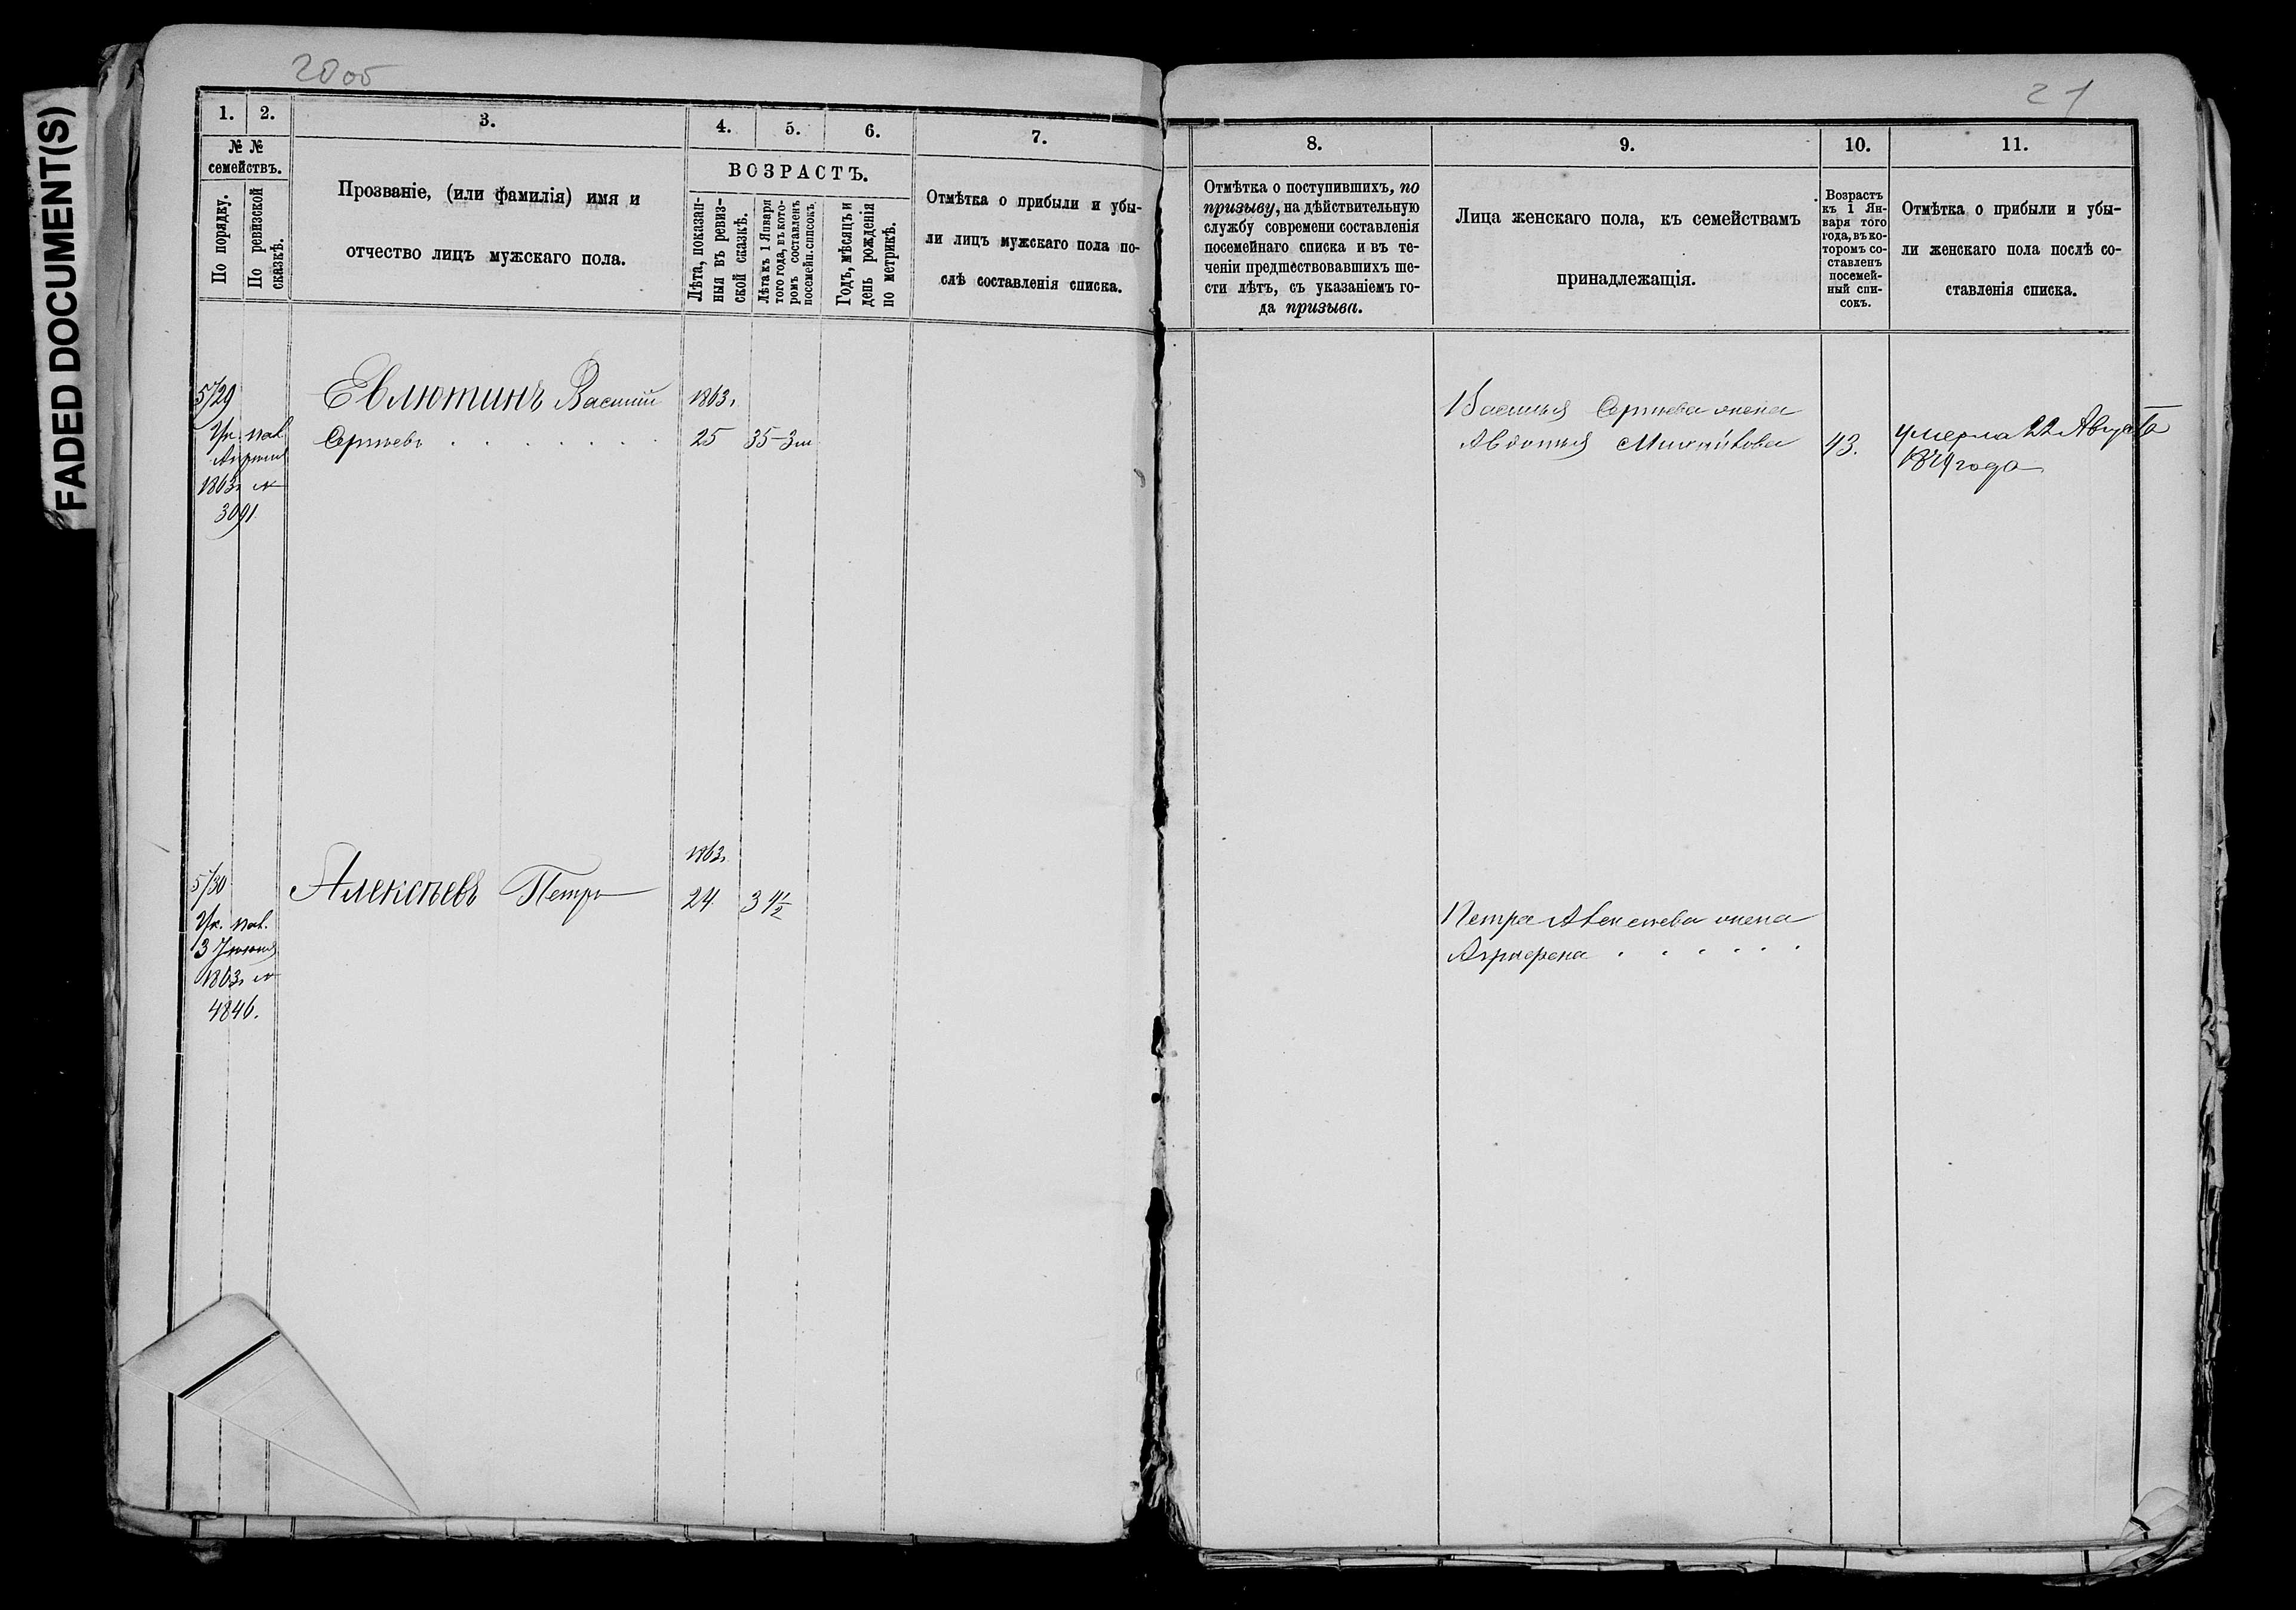 FADED DOCUMENT(S)
20 об
21
1.
2.
3.
4.
5.
6.
7.
№ №
семействъ.
По порядку.
По ревизской
сказкѣ.
Прозваніе, (или фамилія) имя и
отчество лицъ мужскаго пола.
ВОЗРАСТЪ.
Лѣта, показан-
ныя въ ревиз-
ской сказкѣ.
Лѣта къ 1 Января
того года, въ кото-
ромъ составленъ
посемейн. списокъ.
Годъ, мѣсяцъ и
день рожденія
по метрикѣ.
Отмѣтка о прибыли и убы-
ли лицъ мужскаго пола по-
слѣ составленія списка.
8.
9.
10.
11.
Отмѣтка о поступившихъ, по
призыву, на дѣйствительную
службу современи составленія
посемейнаго списка и въ те-
ченіи предшествовавшихъ ше-
сти лѣтъ, съ указаніемъ го-
да призыва.
Лица женскаго пола, къ семействамъ
принадлежащія.
Возрастъ
къ 1 Ян-
варя того
года, въ ко-
торомъ со-
ставленъ
посемей-
ный спи-
сокъ.
Отмѣтка о прибыли и убы-
ли женскаго пола послѣ со-
ставленія списка.
5/29
Ук. пал.
Апрѣля
1863 г №
3091
Евлютинъ Василий
Сергѣевъ
1863 г.
25
35
Василья Сергѣева жена
Авдотья
43.
умерла 22 Августа
года
5/30
Ук. пал.
1863 г №
4846.
Алексѣевъ Петръ
1863 г.
24
34 1/2
Петра Алексѣева жена
Аграфена